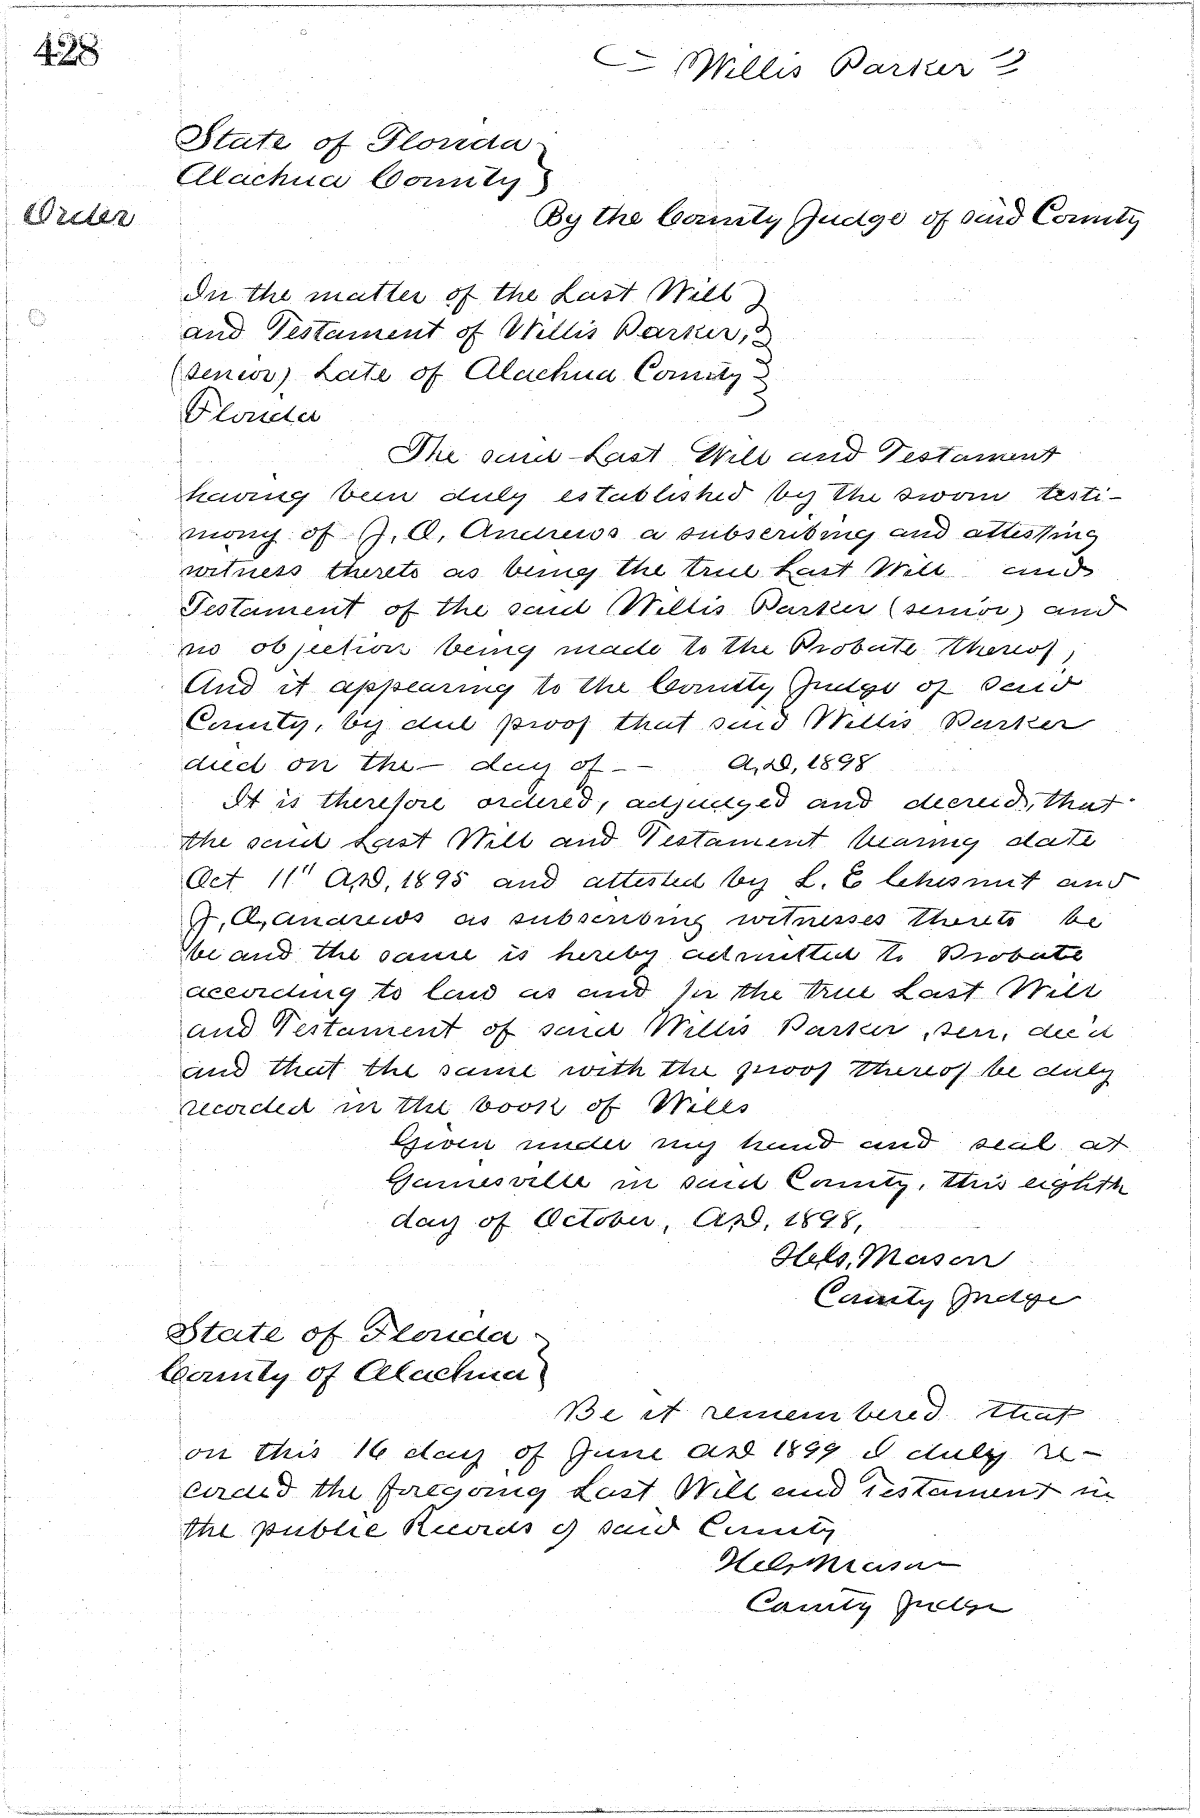 428
Willis Parker
State of Florida
Alachua County
Order
By the County Judge of said County
In the matter of the Last Will
and Testament of Willis Parker,
(senior) Late of Alachua County
Florida
The said Last Will and Testament
having been duly established by the sworn testi-
mony of J. A. Andrews a subscribing and attesting
witness thereto as being the true Last Will and
Testament of the said Willis Parker (senior) and
no objection being made to the Probate thereof,
And it appearing to the County Judge of said
County, by due proof that said Willis Parker
died on the — day of — — A.D. 1898
It is therefore ordered, adjudged and decreed, that
the said Last Will and Testament bearing date
Oct 11" A.D. 1895 and attested by L. E Chesnut and
J. A. Andrews as subscribing witnesses thereto be
be and the same is hereby admitted to Probate
according to law as and for the true Last Will
and Testament of said Willis Parker, sen, dec'd
and that the same with the proof thereof be duly
recorded in the book of Wills
Given under my hand and seal at
Gainesville in said County, this eighth
day of October, A.D. 1898,
Mason
County Judge
State of Florida
County of Alachua
Be it remembered that
on this 16 day of June AD 1899 I duly re-
corded the foregoing Last Will and Testament in
the public Records of said County
Mason
County Judge